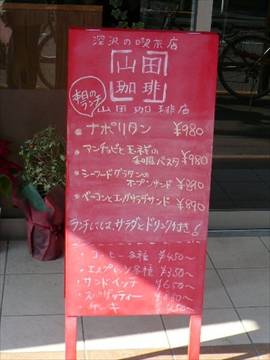 深沢の喫茶店
山田
珈琲
本日のランチ
山田珈琲店
・ナポリタン ¥980
・アンチョビと玉ネギの和風パスタ ¥980
・シーフードグラタンのオープンサンド ¥890
・ベーコンとエッグサラダサンド ¥890
ランチには、サラダとドリンク付き
・コーヒー各種 ¥450〜
・エスプレッソ各種 ¥350〜
・サンドイッチ ¥650〜
・スパゲッティー
・ケーキ